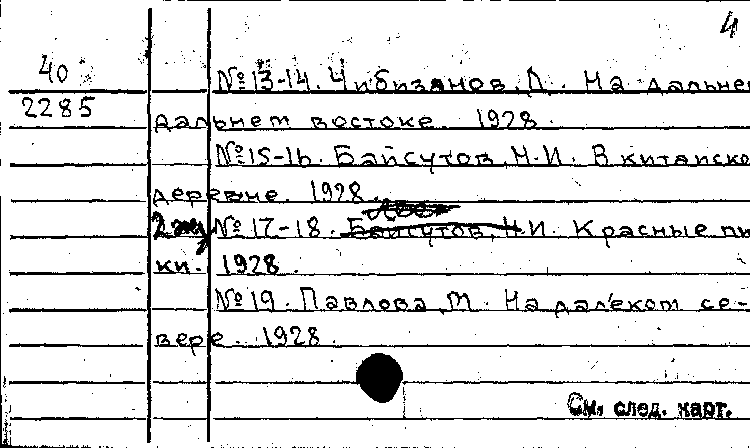 4
40
2285
№13-14. Чибизянов, Л. На дальнем
дальнем востоке. 1928.
№15-16. Байсутов, Н.И. В китайско
деревне. 1928.
2 экз. №17-18. Байсутов, Н.И. Красные пи
ки. 1928.
№19. Павлова, М. На далеком се-
вере. 1928.
См. след. карт.